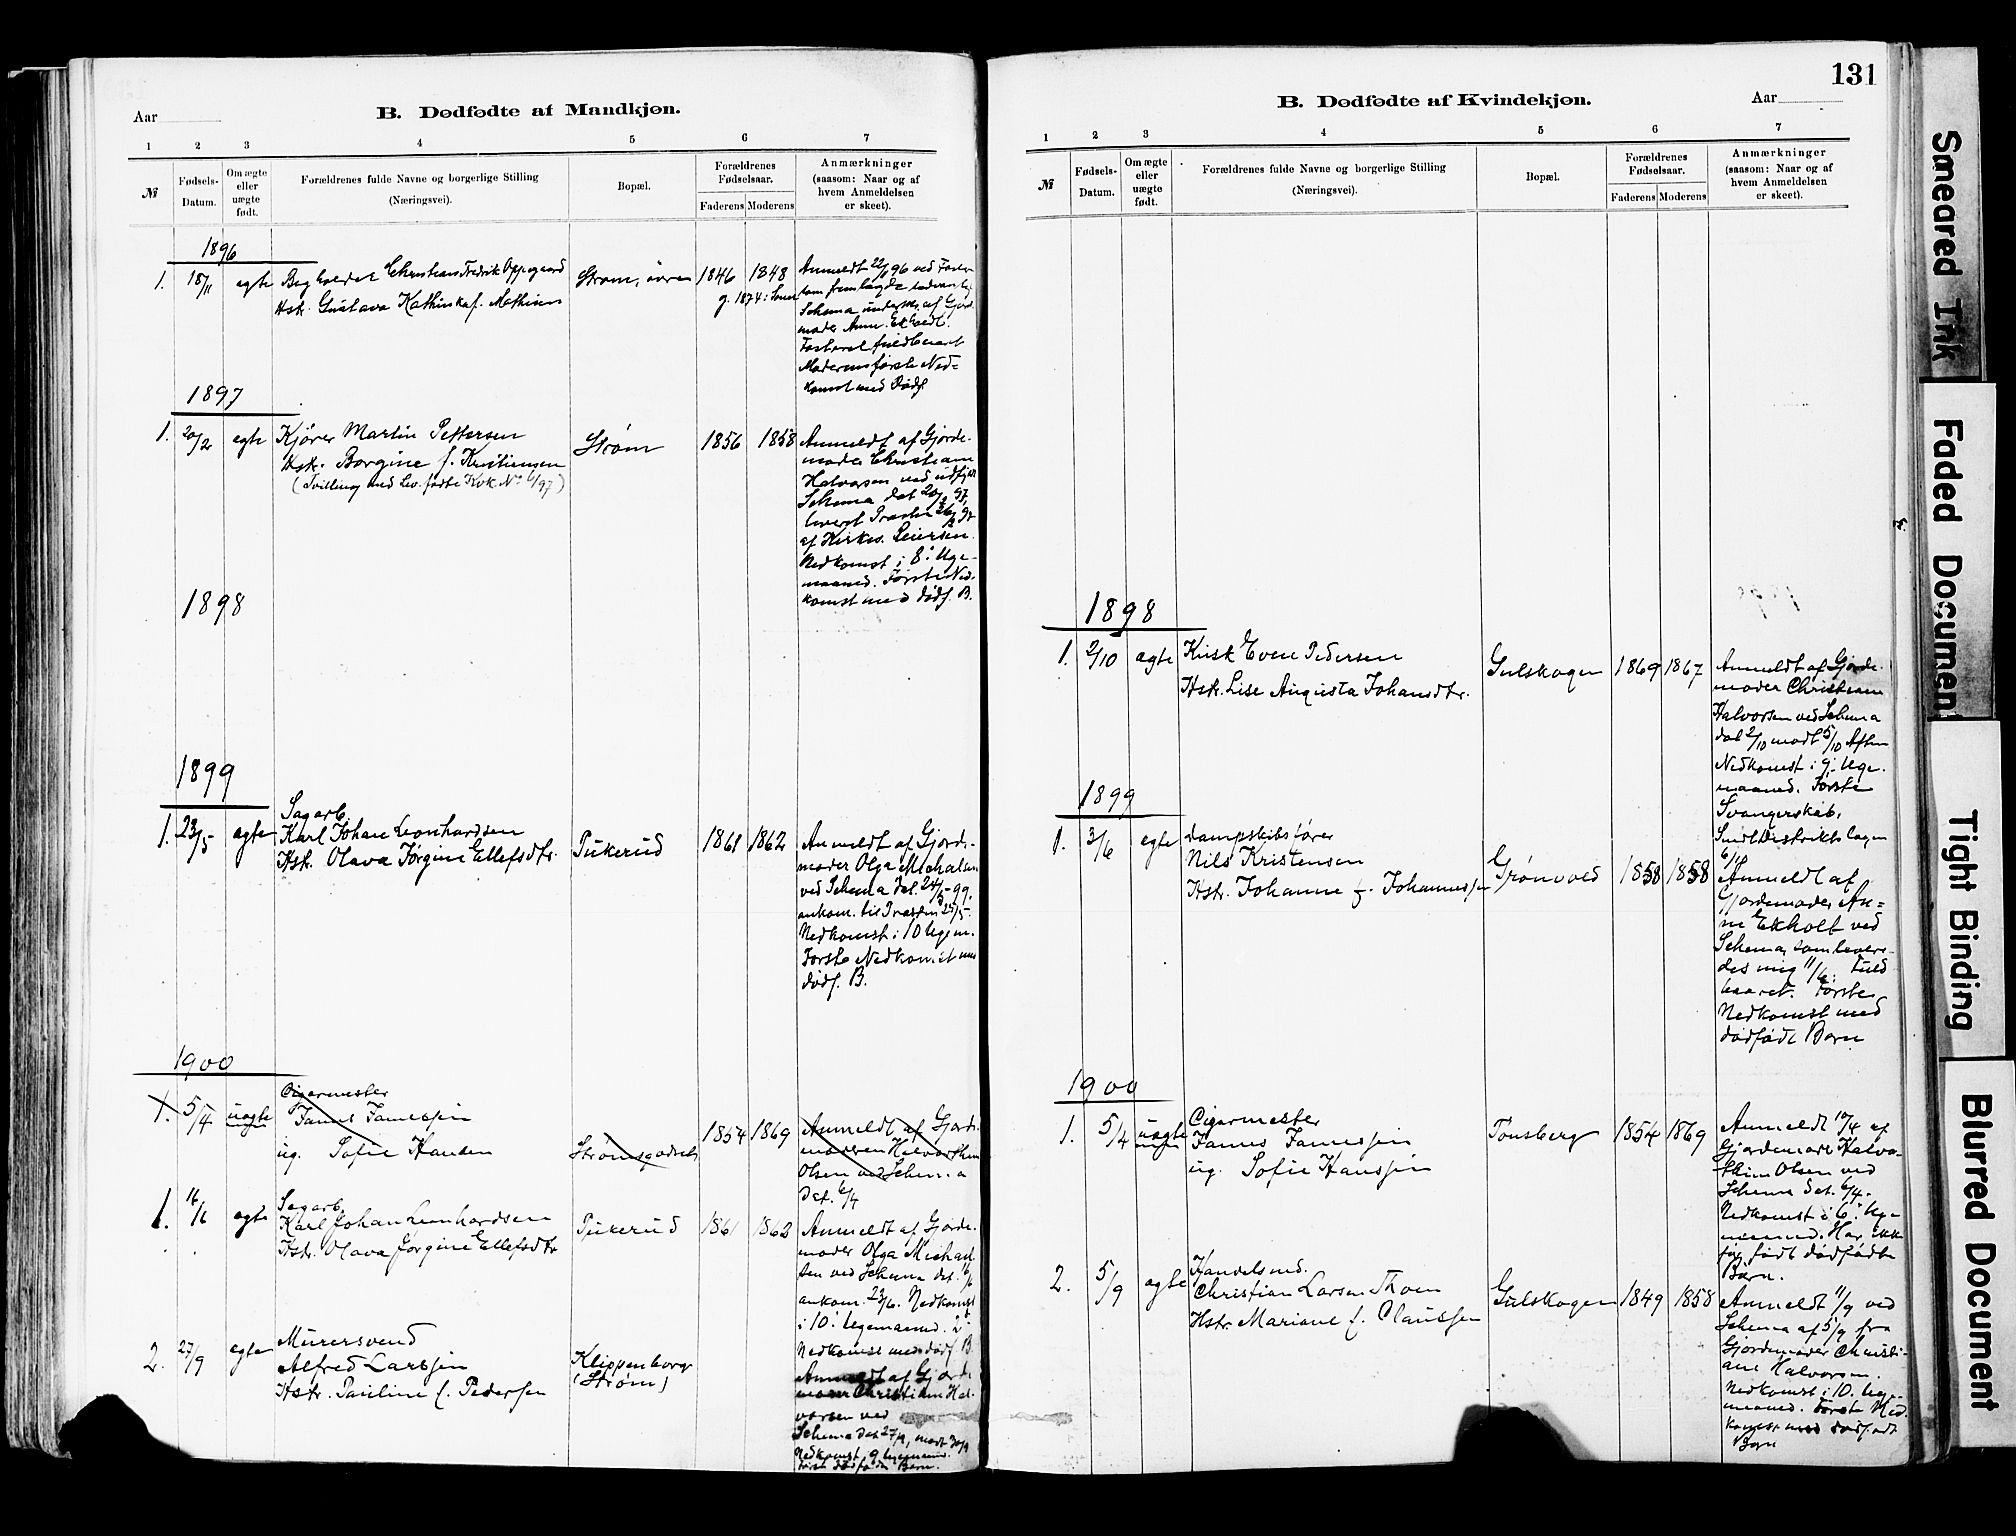 Aar
B. Dødfødte af Mandkjøn.
1 2 3 4 5 6 7
№
Fødsels-Datum.
Om ægte eller uægte født.
Forældrenes fulde Navne og borgerlige Stilling
(Næringsvei).
Bopæl.
Forældrenes Fødselsaar.
Faderens Moderens
Anmærkninger
(saasom: Naar og af
hvem Anmeldelsen
er skeet).
1896
1. 18/11 ægte Christian Fredrik Oppegaard Strøm, øvre 1846 1848
Hstr. Gustava Kathinka f. Mathisen
g. 1874:
Anmeldt 22/11 96 ved
som fremlagde
Schema af Gjorde-
moder
Moderens første Ned-
komst med Dødf.
1897
1. 20/2 egte Kjører Martin Pettersen Strøm 1856 1858
Hstr. Borgine f. Kristiansen
(Tvilling med Lev. fødte Kvk. No 6/97)
Anmeldt af Gjorde-
moder Christiane
Halvorsen ved udfyldt
Schema dat 20/2 97,
af Kirkes.
Nedkomst i 8. Uge-
maaned. Første Ned-
komst med dødf. B.
1898
1899
1. 23/5 ægte Sagarb.
Karl Johan Leonhardsen
Hstr. Olava Jørgine Ellefsdtr. Pukerud 1861 1862
Anmeldt af Gjorde-
moder Olga Michalsen
ved Schema dat. 24/5-99,
ankom. til Præsten 25/5.
Nedkomst i 10 Ugem.
Første Nedkomst med
dødf. B.
1900
1. 5/4 uægte Cigarmester
Jamessen
ug. Sofie Hansen Strømsgodset 1854 1869
Anmeldt af Gjorde-
moderen
Olsen ved Schema
dat. 6/4
1. 16/6 ægte Sagarb.
Karl Johan Leonhardsen
Hstr. Olava Jørgine Ellefsdtr Pukerud 1861 1862
Anmeldt af Gjorde-
moder Olga Michael-
sen ved Schema dat. 16/6
ankom. 23/6. Nedkomst
i 10. Ugemaaned. 2.
Nedkomst med dødf. B.
2. 27/9 ægte Murersvend
Alfred Larssen
Hstr. Pauline f. Pedersen Klippenborg
(Strøm)
Anmeldt af Gjorde-
moder Christiane Hal-
vorsen ved
Schema dat 27/9, modt 30/9
Nedkomst 9 Ugemaaned.
Første dødfødte Barn.
131
B. Dødfødte af Kvindekjøn.
Aar
1 2 3 4 5 6 7
№
Fødsels-Datum.
Om ægte eller uægte født.
Forældrenes fulde Navne og borgerlige Stilling
(Næringsvei).
Bopæl.
Forældrenes Fødselsaar.
Faderens Moderens
Anmærkninger
(saasom: Naar og af
hvem Anmeldelsen
er skeet).
1898
1. 2/10 ægte Kusk Even Pedersen
Hstr. Lise Augusta Johansdtr. Gulskogen 1869 1867
Anmeldt af Gjorde-
moder Christiane
Halvorsen ved Schema
dat 2/10 modt 5/10 Aften
Nedkomst i 9. Uge-
maaned. Første
Svangerskab,
1899
1. 3/6 egte Dampskibsfører
Nils Kristensen
Hstr. Johanne f. Johannessen Grønvold 1858 1858
Anmeldt af
Gjordemoder An-
ne Ekholt ved
Schema, som lever-
des mig 11/6. Fuld-
baaret. Første
Nedkomst med
dødfødt Barn
1900
1. 5/4 uægte Cigarmester
Jamessen
ug. Sofie Hanssen Tønsberg 1854 1869
Anmeldt 10/4 af
Olsen ved
Schema dat. 6/4.
Nedkomst i 6. Uge-
maaned. Har ikke
før født dødfødte
Børn.
2. 5/9 ægte Handelsmd.
Christian Larsen Thoen
Hstr. Mariane f. Claussen Gulskogen 1849 1858
Anmeldt 11/9 ved
Schema af 5/9 fra
Gjordemoder Christi-
ane Halvorsen.
Nedkomst i 10. Uge-
maaned. Første Ned-
komst med dødfødt
Barn
Smeared Ink
Faded Document
Tight Binding
Blurred Document